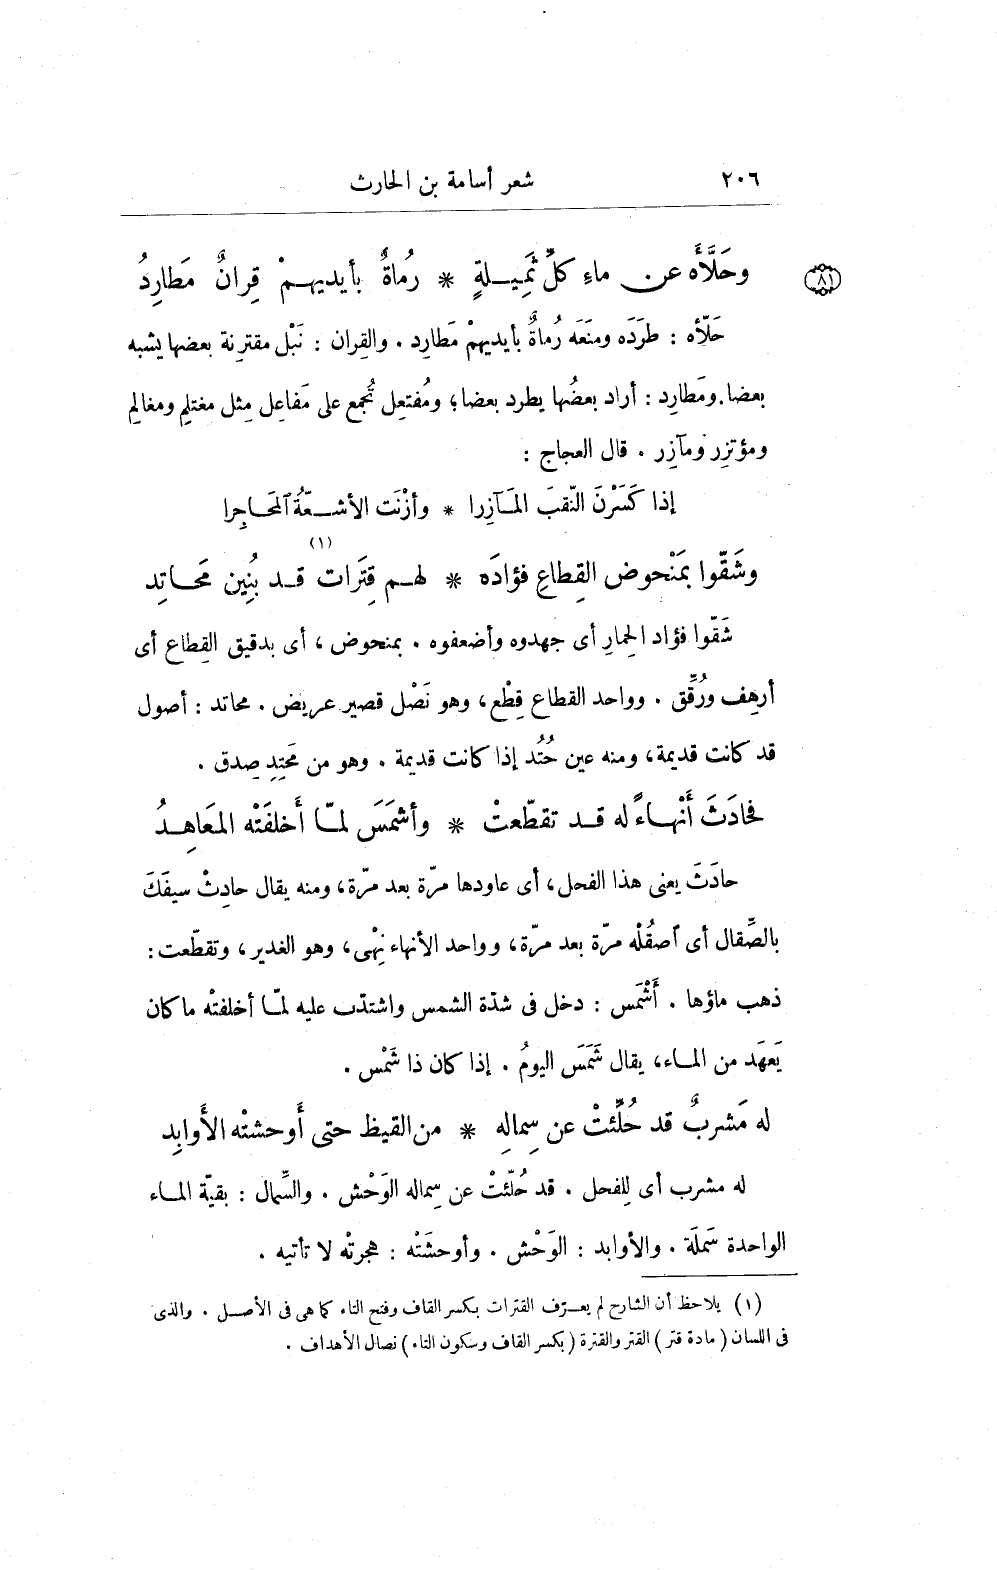 ٢٠٦ شعر أسامة بن الحارث
وحَلَّأَه عن ماءِ كلِّ ثَمِيلةٍ * رُماةٌ بأيديهمْ قِرانٌ مَطارِدُ
٨١
حَلّأه : طرَدَه ومنَعَه رُماةٌ بأيديهمْ مَطارِد . والقِران : نَبْل مقترنة بعضها يشبه
بعضا. ومَطارِد : أراد بعضُها يطرد بعضا؛ ومُفتعِل تُجمع على مَفاعِل مِثل مغتلِم ومغالِم
ومؤتزِر ومآزِر . قال العجاج :
إذا كَسَرْنَ النّقبَ المَآزِرا * وأزْنَت الأشعّةُ ٱلمَحاجِرا
وشَقّوا بمَنْحوض القِطاعِ فؤادَه * لهم قِتَرات (١) قد بُنِين مَحاتِد
شَقّوا فؤاد الحمارِ أى جهدوه وأضعفوه . بمنحوض ، أى بدقيق القِطاع أى
أرهِف ورُقِّق . وواحد القطاع قِطْع، وهو نَصْل قصير عريض . محاتد : أصول
قد كانت قديمة، ومنه عين حُتُد إذا كانت قديمة . وهو من مَحتِدِ صِدق .
فحادَثَ أَنْهاءً له قد تقطّعتْ * وأشمَسَ لمّا أَخلَفَتْه المَعاهِدُ
حادَثَ يعنى هذا الفحل، أى عاودها مرّة بعد مرّة، ومنه يقال حادِثْ سيفَكَ
بالصِّقال أى اصقُلْه مرّة بعد مرّة، وواحد الأنهاء نِهْى، وهو الغدير، وتقطّعت :
ذهب ماؤها . أَشْمَس : دخل فى شدّة الشمس واشتدّت عليه لمّا أخلفتْه ما كان
يَعهَد من الماء، يقال شَمَسَ اليومُ . إذا كان ذا شَمْس .
له مَشربٌ قد حُلِّئتْ عن سِمالِهِ * من القيظ حتى أَوحشتْه الأَوابِد
له مشرب أى لِلفحل . قد حُلّئتْ عن سِماله الوَحْش . والسِّمال : بقيّة الماء
الواحدة سَملَة . والأوابد : الوَحْش . وأوحشَتْه : هجرتْه لا تأتيه .
(١) يلاحظ أن الشارح لم يعرّف القترات بكسر القاف وفتح التاء كما هى فى الأصل . والذى
فى اللسان (مادة قتر) القتر والقترة (بكسر القاف وسكون التاء) نصال الأهداف .